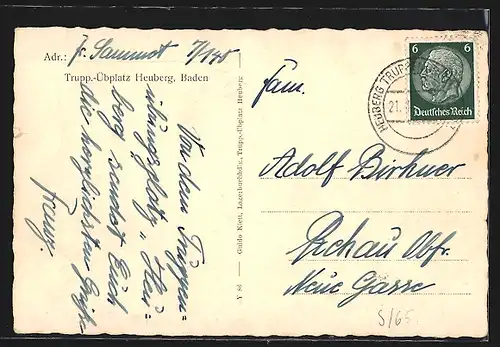 Adr.: Jr. Sammet 7/195
Trupp.-Übplatz Heuberg, Baden
Von dem Truppen=
übungsplatz „Heu=
berg sendet Euch
die herzlichsten Grüße
Franz.
Y 86 Guido Kiett, Lagerbuchhdlg., Trupp.-Übplatz Heuberg
HEUBERG TRUPP
21.
6 6
Deutsches Reich
Fam.
Adolf Birkner
Rehau Obfr.
Neue Gasse
S/65